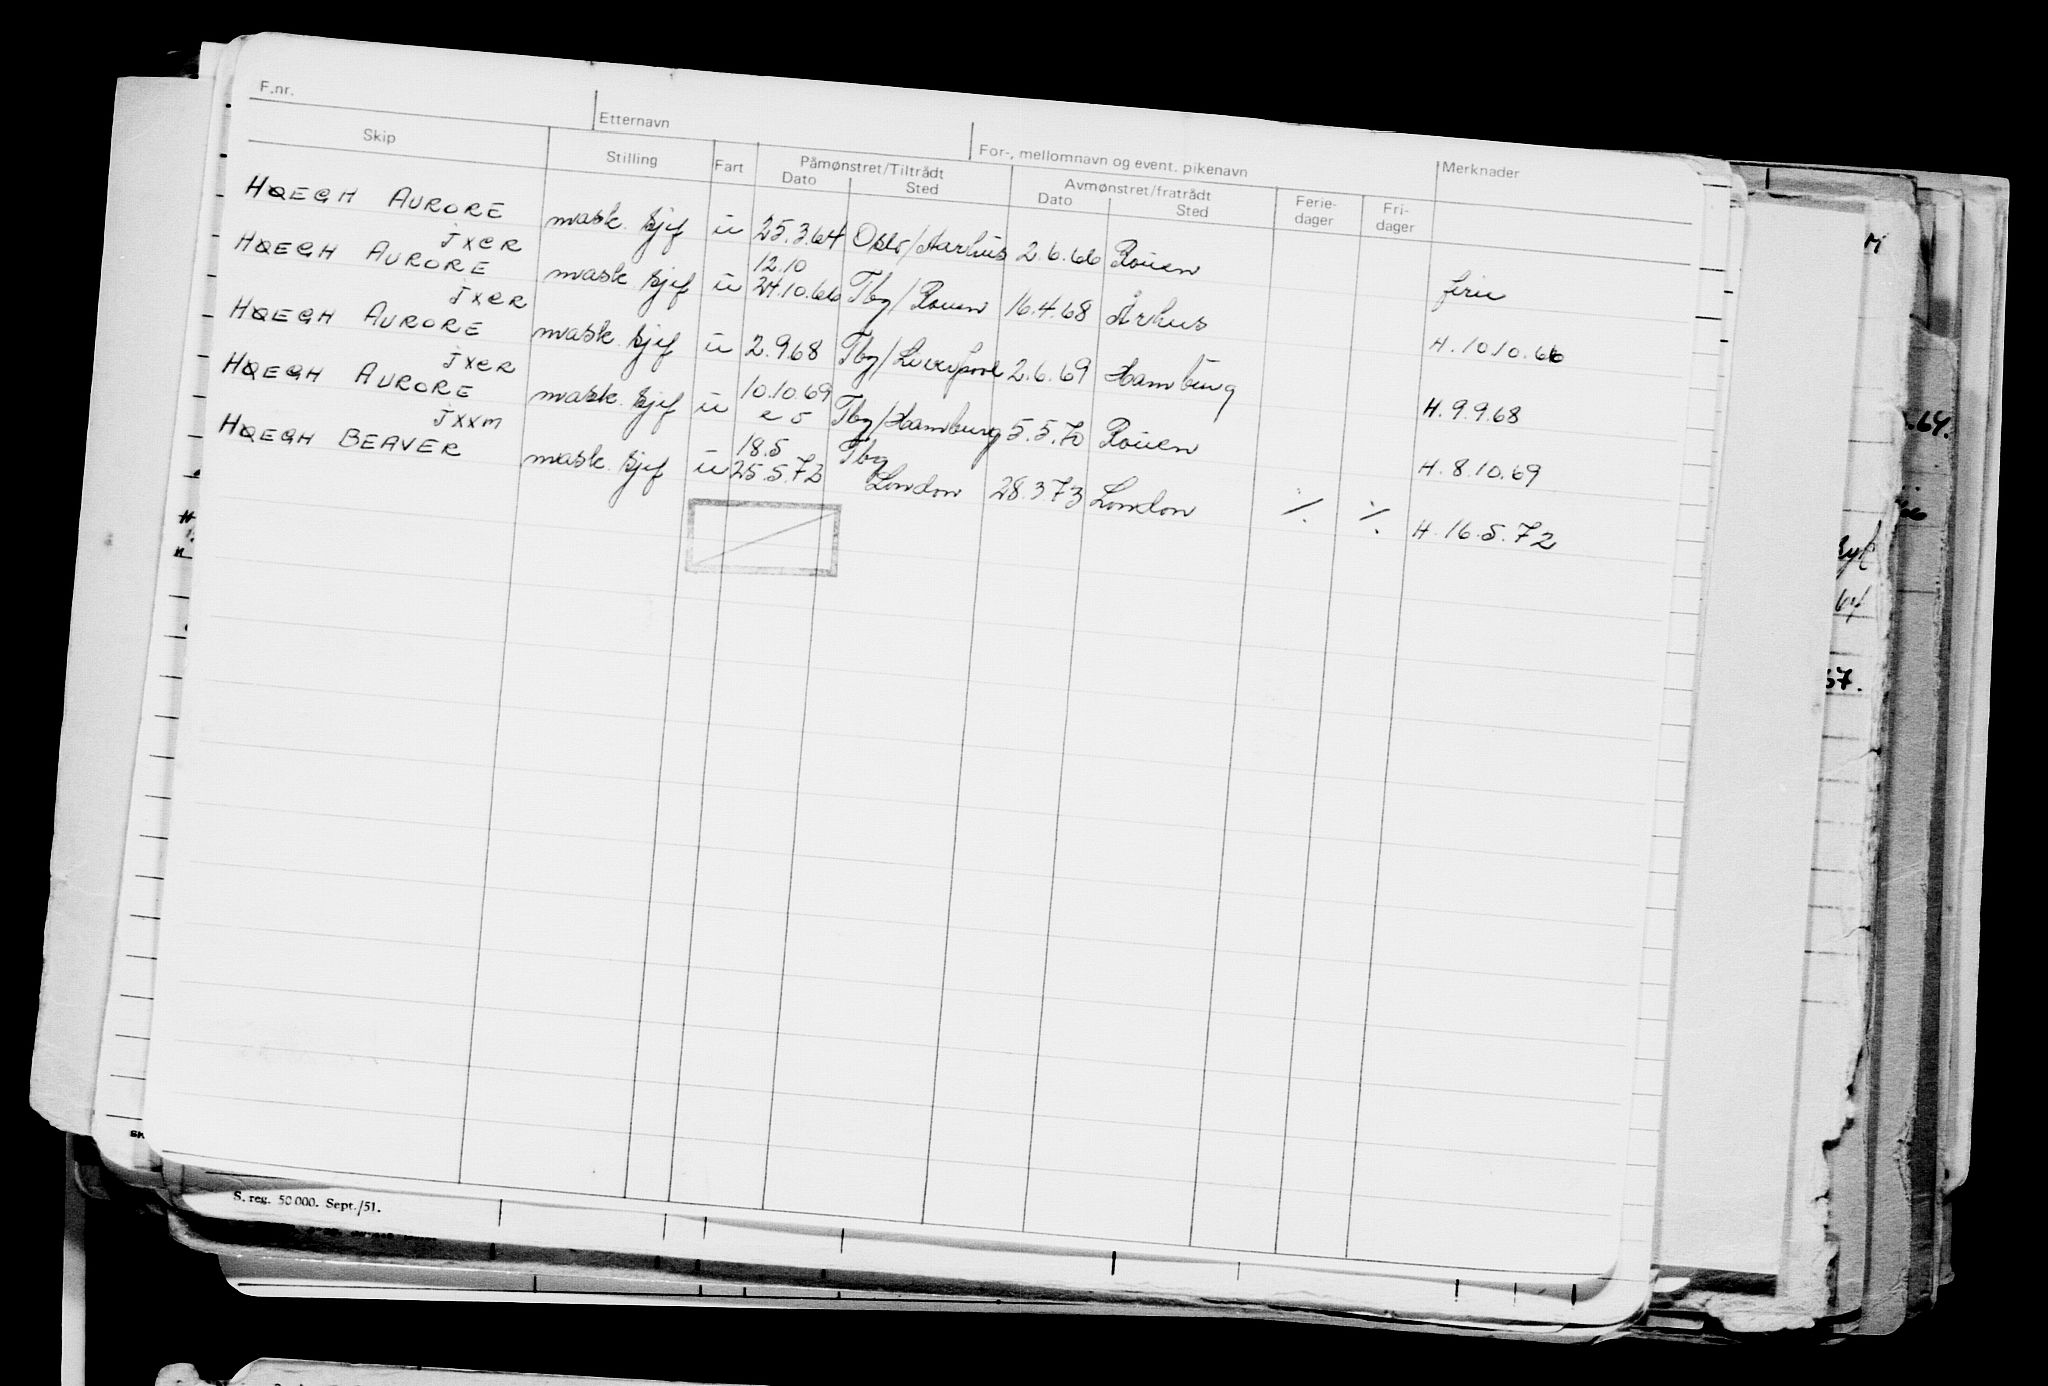 F.nr.
Etternavn
For-, mellomnavn og event. pikenavn
Merknader
Skip Stilling Fart Påmønstret/Tiltrådt Avmønstret/fratrådt Ferie- Fri-
Dato Sted Dato Sted dager dager
HØEGH AURORE mask. sjef u 25.3.64 Oslo/Aarhus 2.6.66 Rouen ferie
JXCR 12.10
HØEGH AURORE mask. sjef u 24.10.66 Tbg/Rouen 16.4.68 Århus H. 10.10.66
JXCR
HØEGH AURORE mask. sjef u 2.9.68 Tbg/Liverpool 2.6.69 Hamburg H. 9.9.68
JXCR 10.10.69
HØEGH AURORE mask. sjef u Tbg/Hamburg 5.5.70 Rouen H. 8.10.69
JXXM 18.5 Tbg
HØEGH BEAVER mask. sjef u 25.5.72 London 28.3.73 London ./. ./. H. 16.5.72
M
.64.
66
64
67.
S. reg. 50 000. Sept./51.